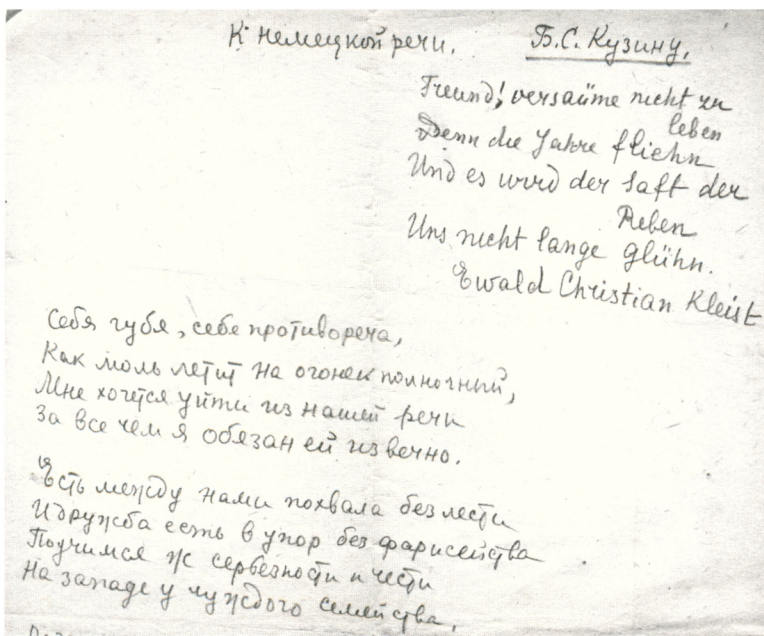 К немецкой речи. Б.С. Кузину,
Freund! versaüme nicht zu
leben
Denn die Jahre fliehn
Und es wird der Saft der
Reben
Uns nicht lange glühn.
Ewald Christian Kleist
Себя губя, себе противореча,
Как моль летит на огонек полночный,
Мне хочется уйти из нашей речи
За все чем я обязан ей извечно.
Есть между нами похвала без лести
И дружба есть в упор без фарисейства
Поучимся ж серьезности и чести
На западе у чуждого семейства.